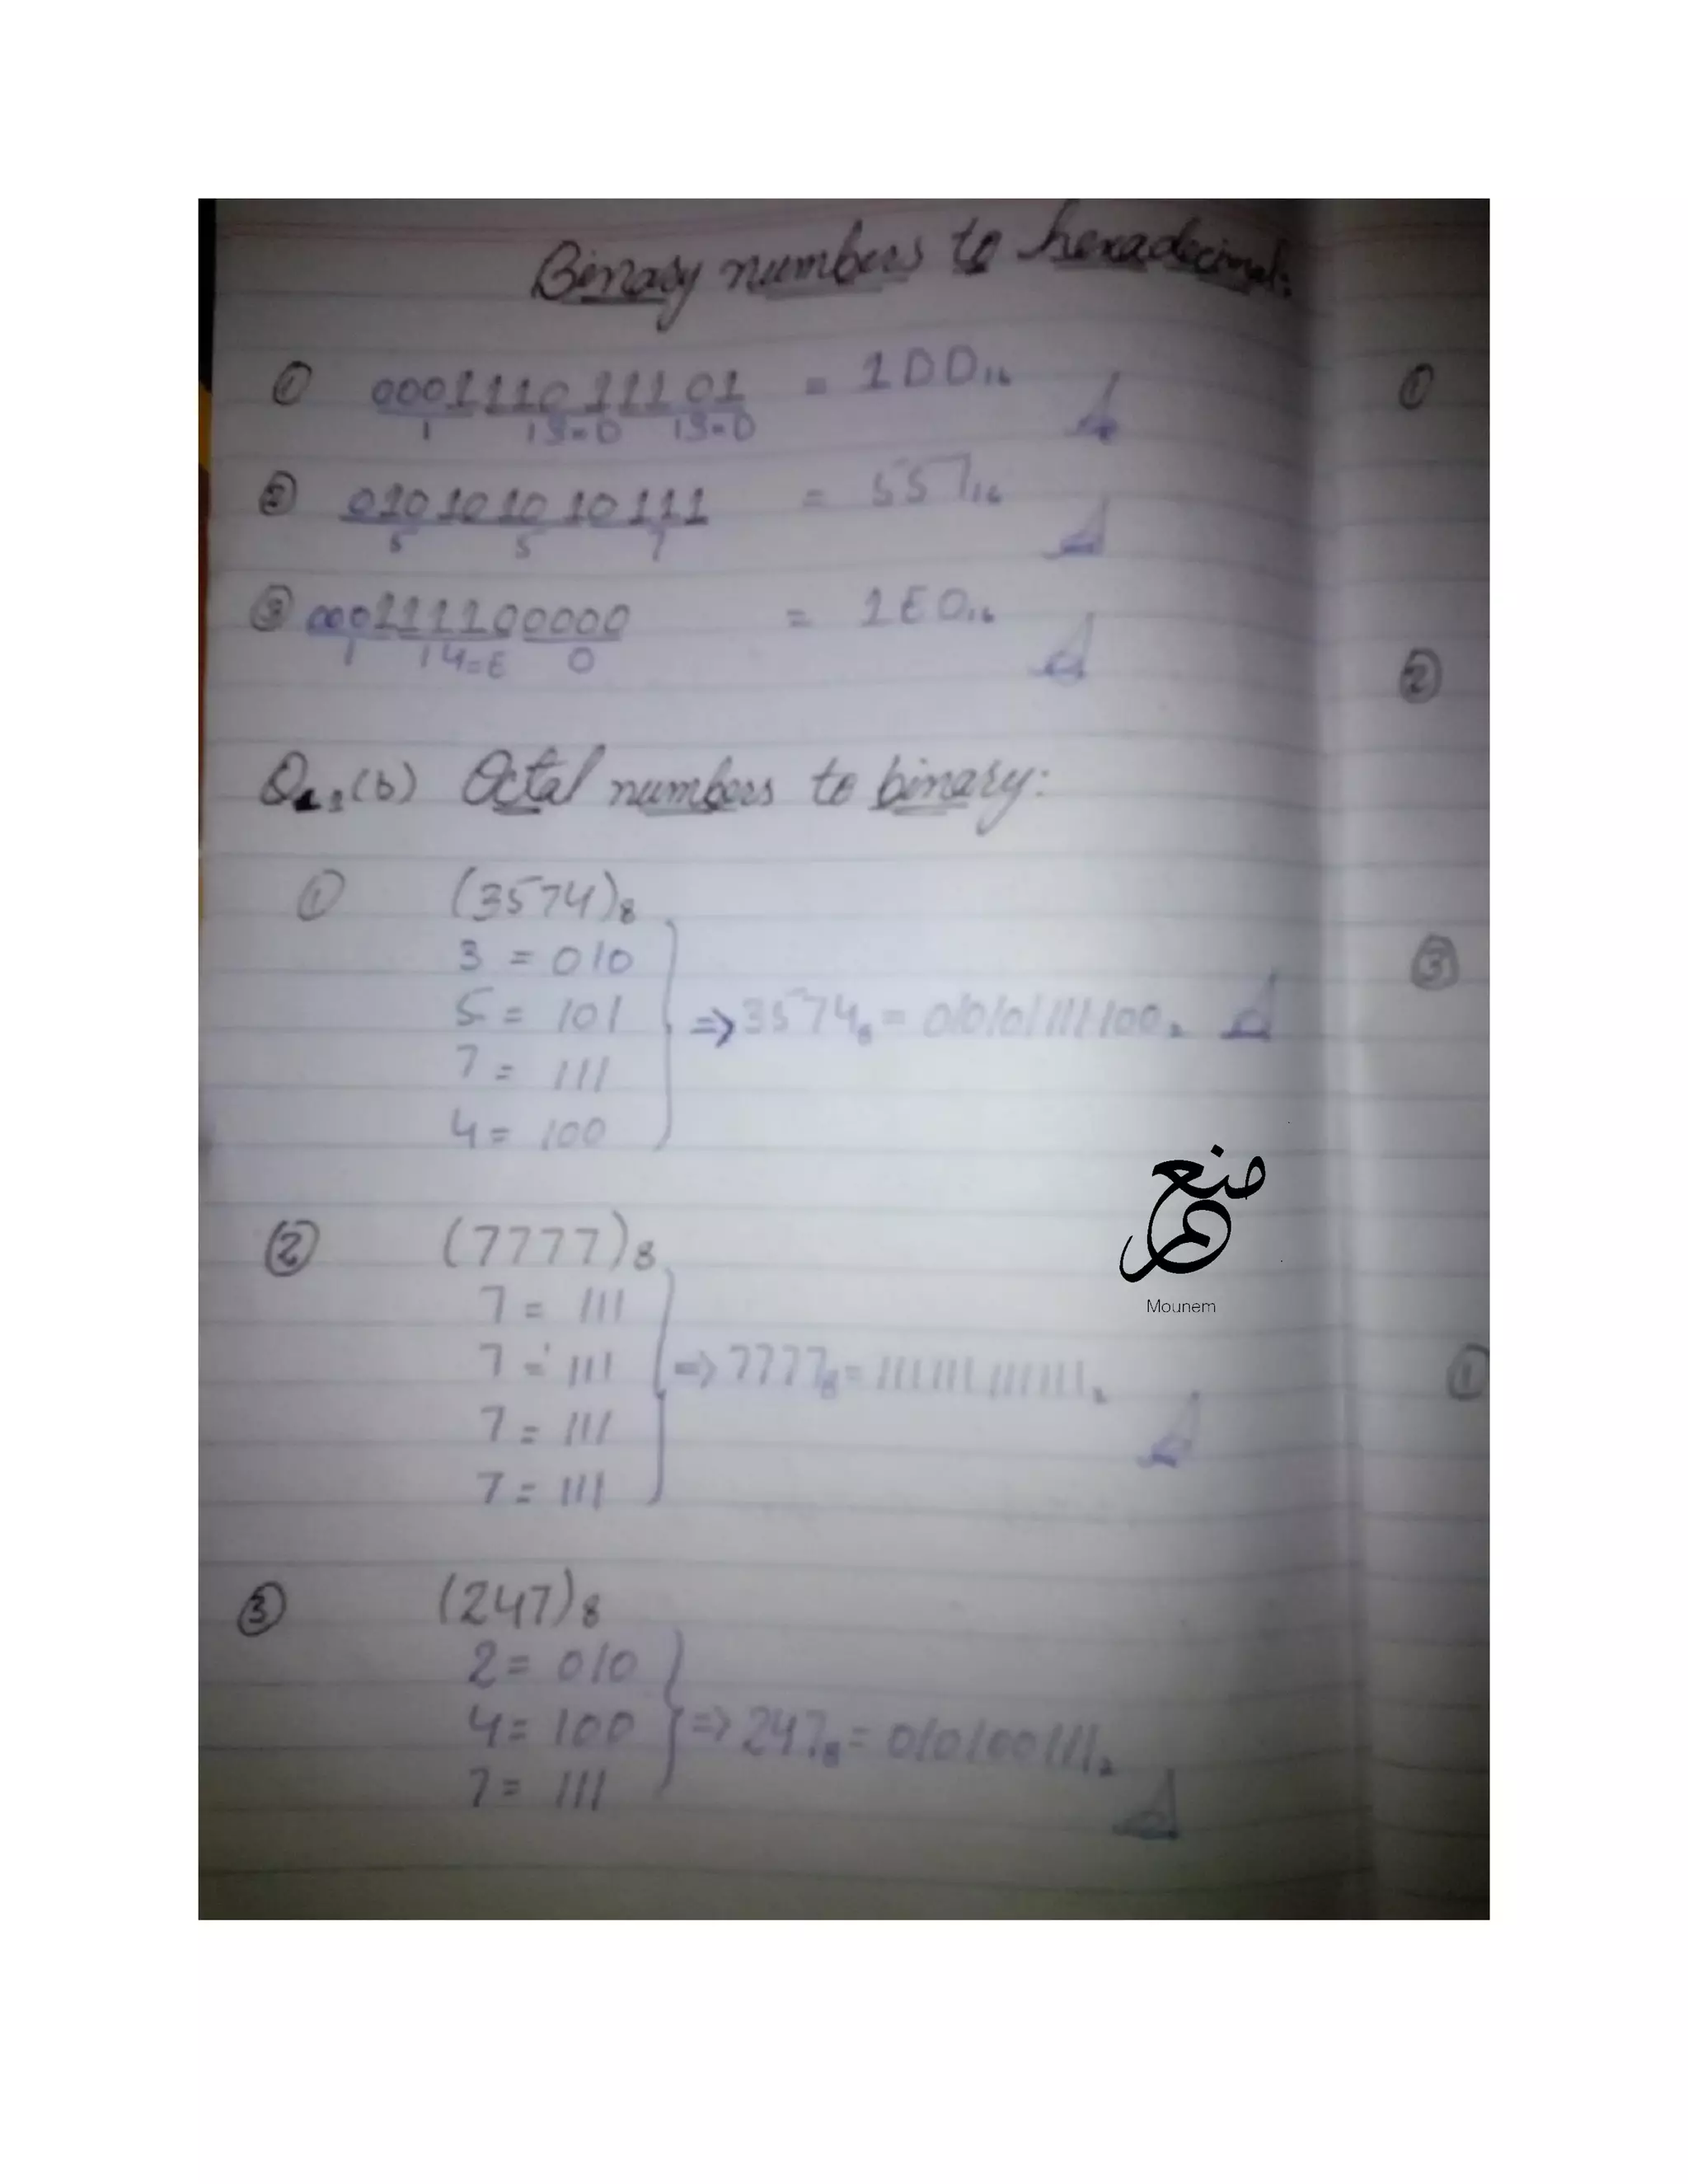 Binary numbers to hexadecimal:
① 000111011101 = 1DD₁₆
1 13=D 13=D
② 010101010111 = 557₁₆
5 5 7
③ 000111100000 = 1E0₁₆
1 14=E 0
(b) Octal numbers to binary:
① (3574)₈
3 = 010
5 = 101
⇒ 3574₈ = 010101111100₂
7 = 111
4 = 100
② (7777)₈
7 = 111
7 = 111
⇒ 7777₈ = 111111111111₂
7 = 111
7 = 111
③ (247)₈
2 = 010
4 = 100
⇒ 247₈ = 010100111₂
7 = 111
①
②
③
①
Mounem